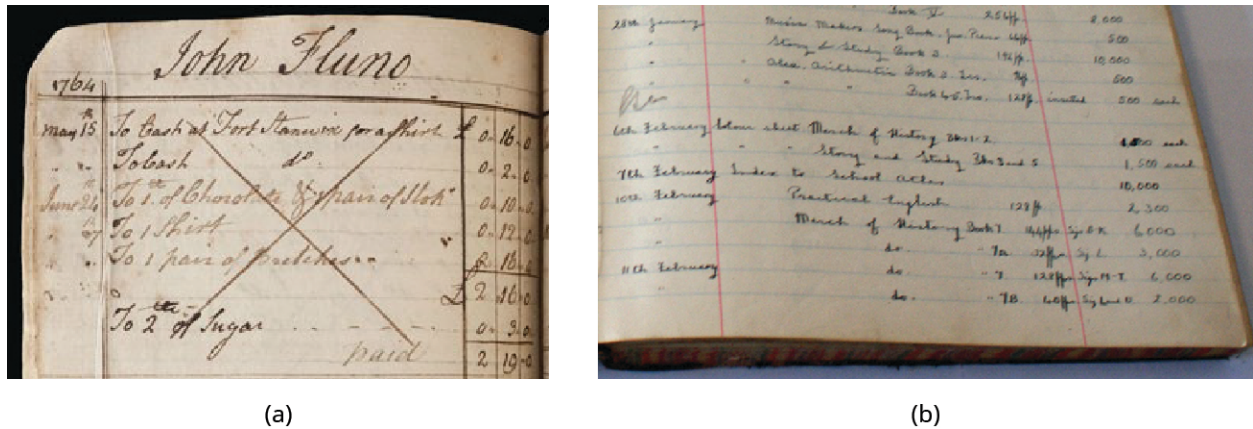 John Fluno
1764
May 15th To Cash at Fort Stanwix for a Shirt £ 0 - 16 - 0
" " To Cash do 0 - 2 - 0
June 24 To 1 lb of Chocolate & 1 pair of 0 - 10 - 0
" 27 To 1 Shirt 0 - 12 - 0
" " To 1 pair of Britches 16 - 0
£ 2 16 - 0
To 2 lb of Sugar 0 - 3 - 0
paid 2 19 - 0
(a)
Book V 256pp. 2,000
28th January Music Makers Song Book. Piano 500
" Story & Study Book 3. 192pp. 10,000
" Arithmetic Book 3. 500
" " Book 4 & 5. 128pp. 500 each
6th February Colour sheet March of History Bks 1-2. each
" " " Story and Study Bks 3 and 5 1,500 each
7th February Index to School Atlas 10,000
10th February Practical English 128pp. 2,300
" March of History Book 7. 6,000
" do. " 7A 3,000
11th February do. " 8 128pp 6,000
" do. " 7B. 2,000
(b)